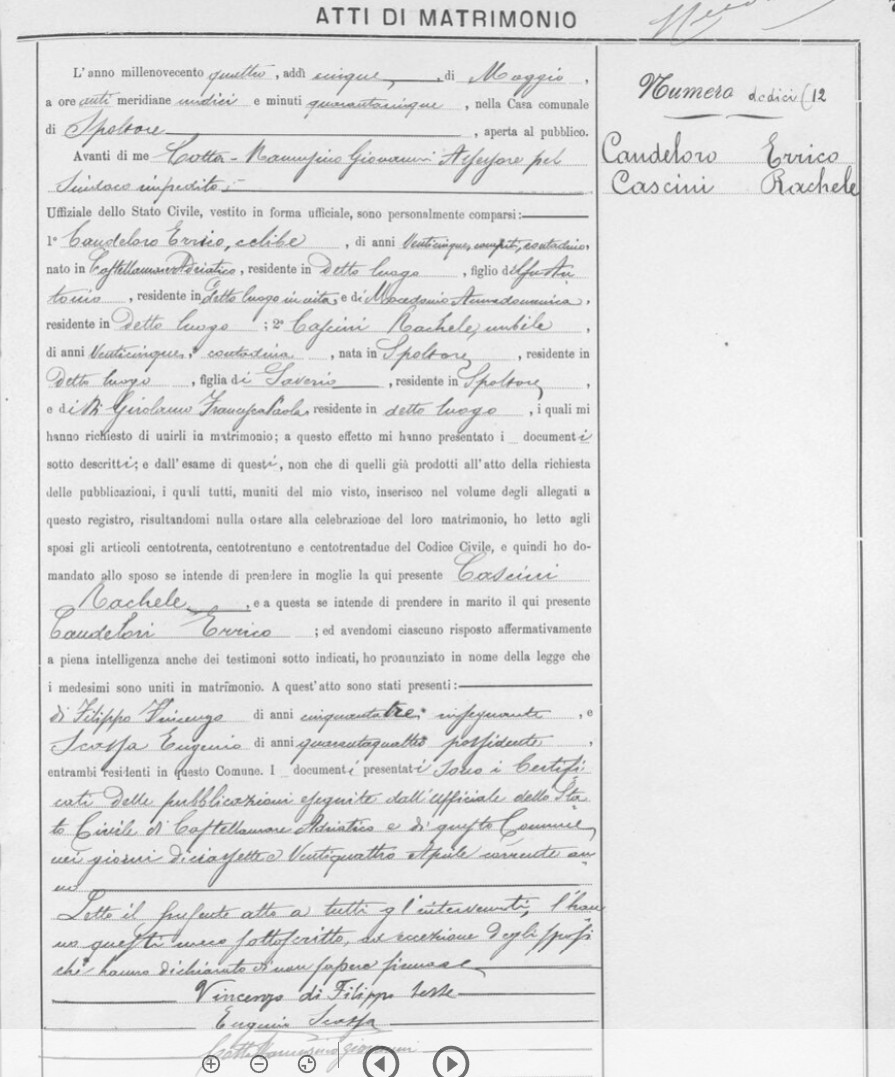 ATTI DI MATRIMONIO
Numero dodici (12
Candeloro Errico
Cascini Rachele
L'anno millenovecento quattro, addì cinque, di Maggio,
a ore anti meridiane undici e minuti quarantacinque, nella Casa comunale
di Spoltore, aperta al pubblico.
Avanti di me Cotta-Ramusino Giovanni Assessore pel
Sindaco impedito
Uffiziale dello Stato Civile, vestito in forma ufficiale, sono personalmente comparsi:
1º Candeloro Errico, celibe, di anni Venticinque, compiti, contadino,
nato in Castellamare Adriatico, residente in detto luogo, figlio di Giustin
tonio, residente in detto luogo in vita, e di Macedonio Annadomenica,
residente in detto luogo; 2º Cascini Rachele, nubile,
di anni Venticinque, contadina, nata in Spoltore, residente in
detto luogo, figlia di Saverio, residente in Spoltore,
e di Di Girolamo Francescapaola residente in detto luogo, i quali mi
hanno richiesto di unirli in matrimonio; a questo effetto mi hanno presentato i documenti
sotto descritti; e dall'esame di questi, non che di quelli già prodotti all'atto della richiesta
delle pubblicazioni, i quali tutti, muniti del mio visto, inserisco nel volume degli allegati a
questo registro, risultandomi nulla ostare alla celebrazione del loro matrimonio, ho letto agli
sposi gli articoli centotrenta, centotrentuno e centotrentadue del Codice Civile, e quindi ho do-
mandato allo sposo se intende di prendere in moglie la qui presente Cascini
Rachele, e a questa se intende di prendere in marito il qui presente
Candelori Errico; ed avendomi ciascuno risposto affermativamente
a piena intelligenza anche dei testimoni sotto indicati, ho pronunziato in nome della legge che
i medesimi sono uniti in matrimonio. A quest'atto sono stati presenti:
di Filippo Vincenzo di anni cinquantatre, insegnante, e
Scossa Eugenio di anni quarantaquattro possidente,
entrambi residenti in questo Comune. I documenti presentati sono i Certifi
cati delle pubblicazioni eseguite dall'Uffiziale dello Sta
to Civile di Castellamare Adriatico e di questo Comune,
nei giorni diciassette e Ventiquattro Aprile corrente an
no
Letto il presente atto a tutti gl'intervenuti, l'han
no questi meco sottoscritto, ad eccezione degli sposi
che hanno dichiarato di non sapere firmare
Vincenzo di Filippo teste
Eugenio Scossa
Cotta Ramusino Giovanni